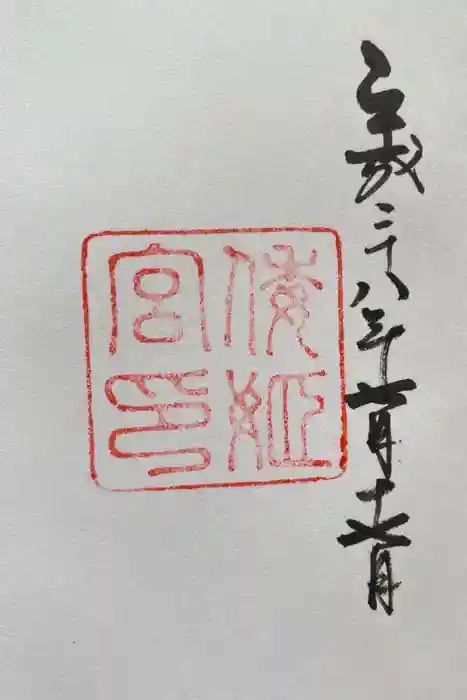 平成二十八年七月十七日
倭姫
宮印